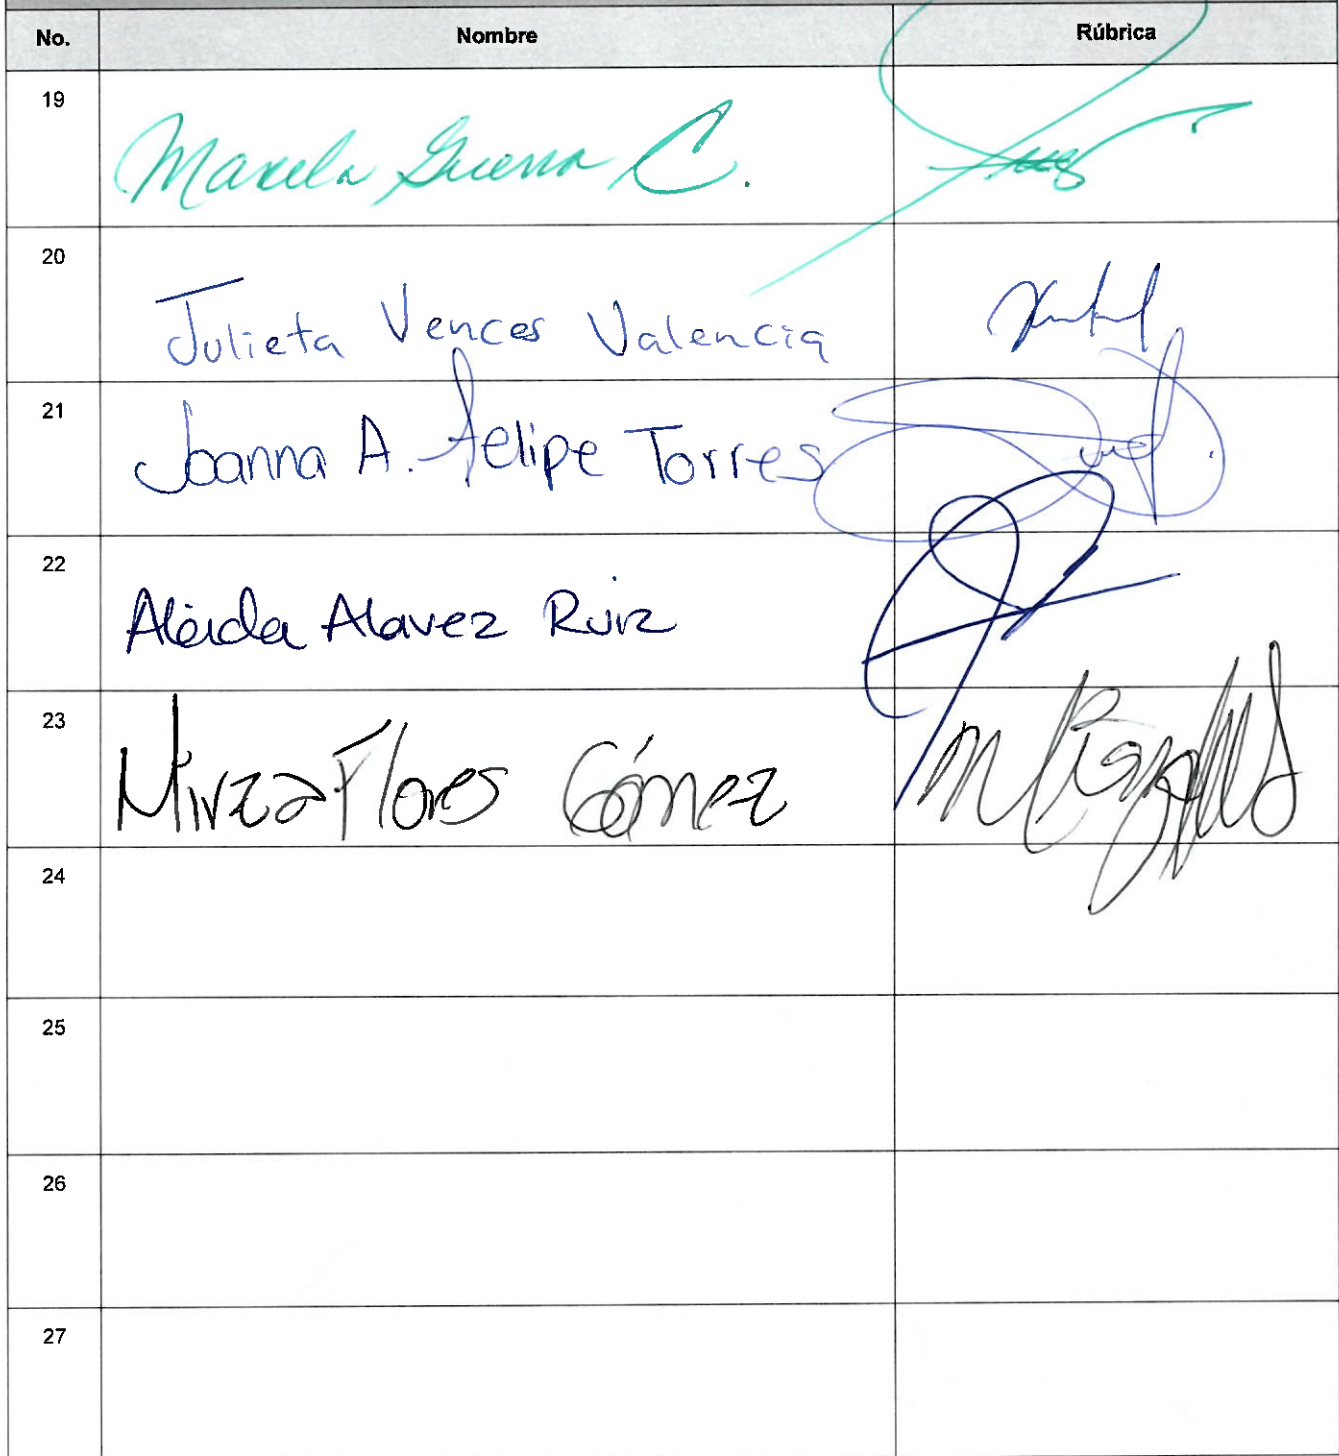 No. Nombre Rúbrica
19 Marcela Guerra C.
20 Julieta Vences Valencia
21 Joanna A. Felipe Torres
22 Aleida Alavez Ruiz
23 Mirza Flores Gómez
24
25
26
27